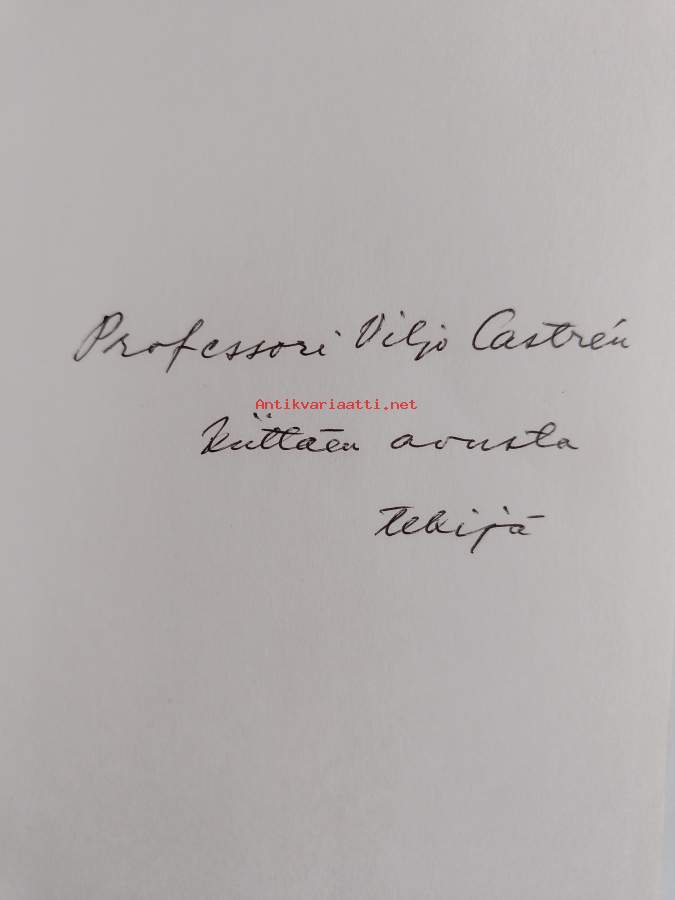 Professori Viljo Castrén
Antikvariaatti.net
kiittäen avusta
tekijä